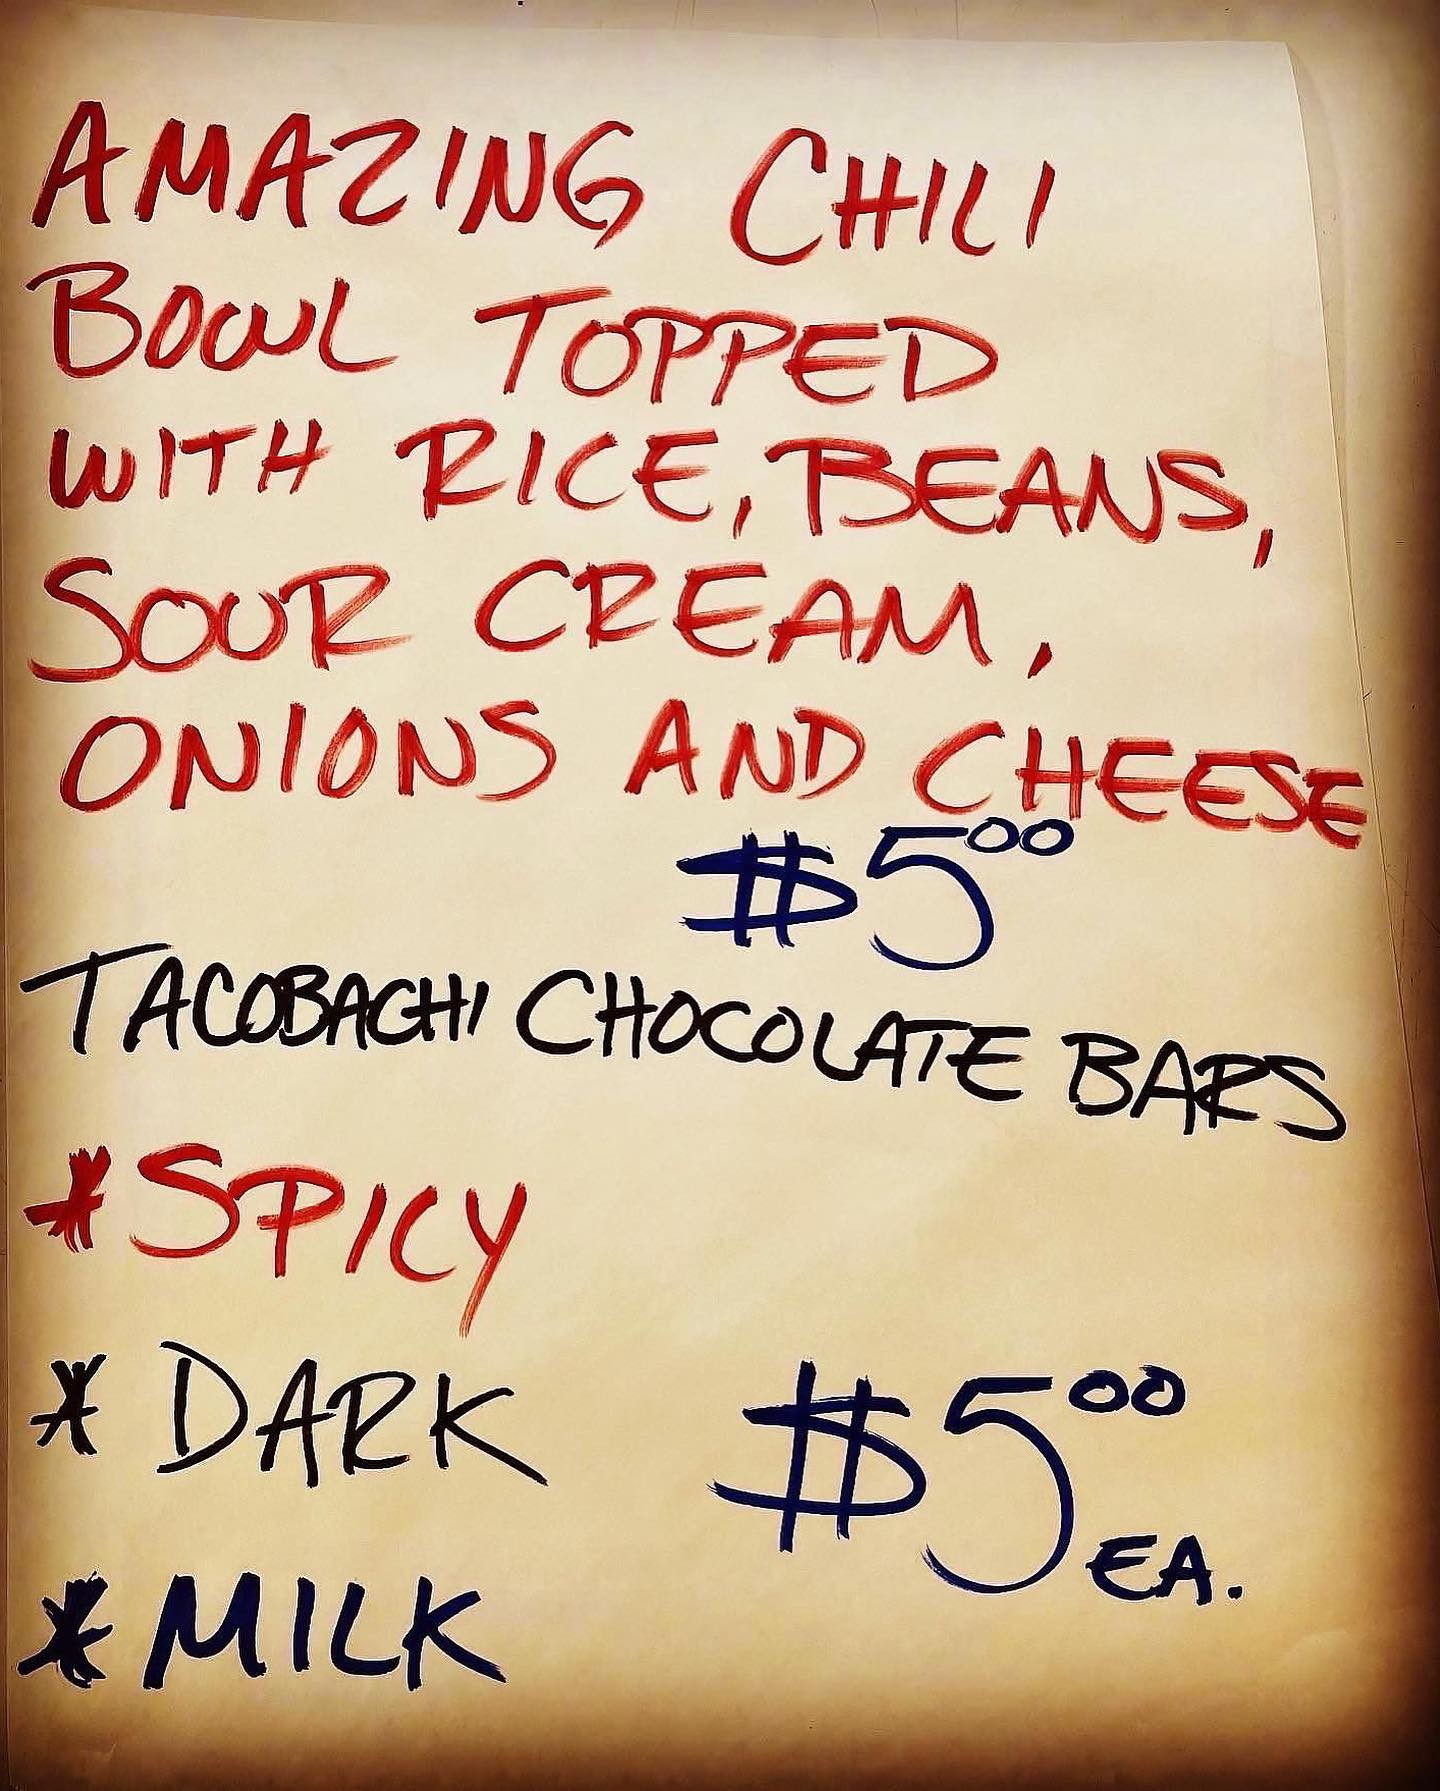 AMAZING CHILI
BOWL TOPPED
WITH RICE, BEANS,
SOUR CREAM,
ONIONS AND CHEESE
$5.00
TACOBACHI CHOCOLATE BARS
* SPICY
* DARK
$5.00 EA.
* MILK